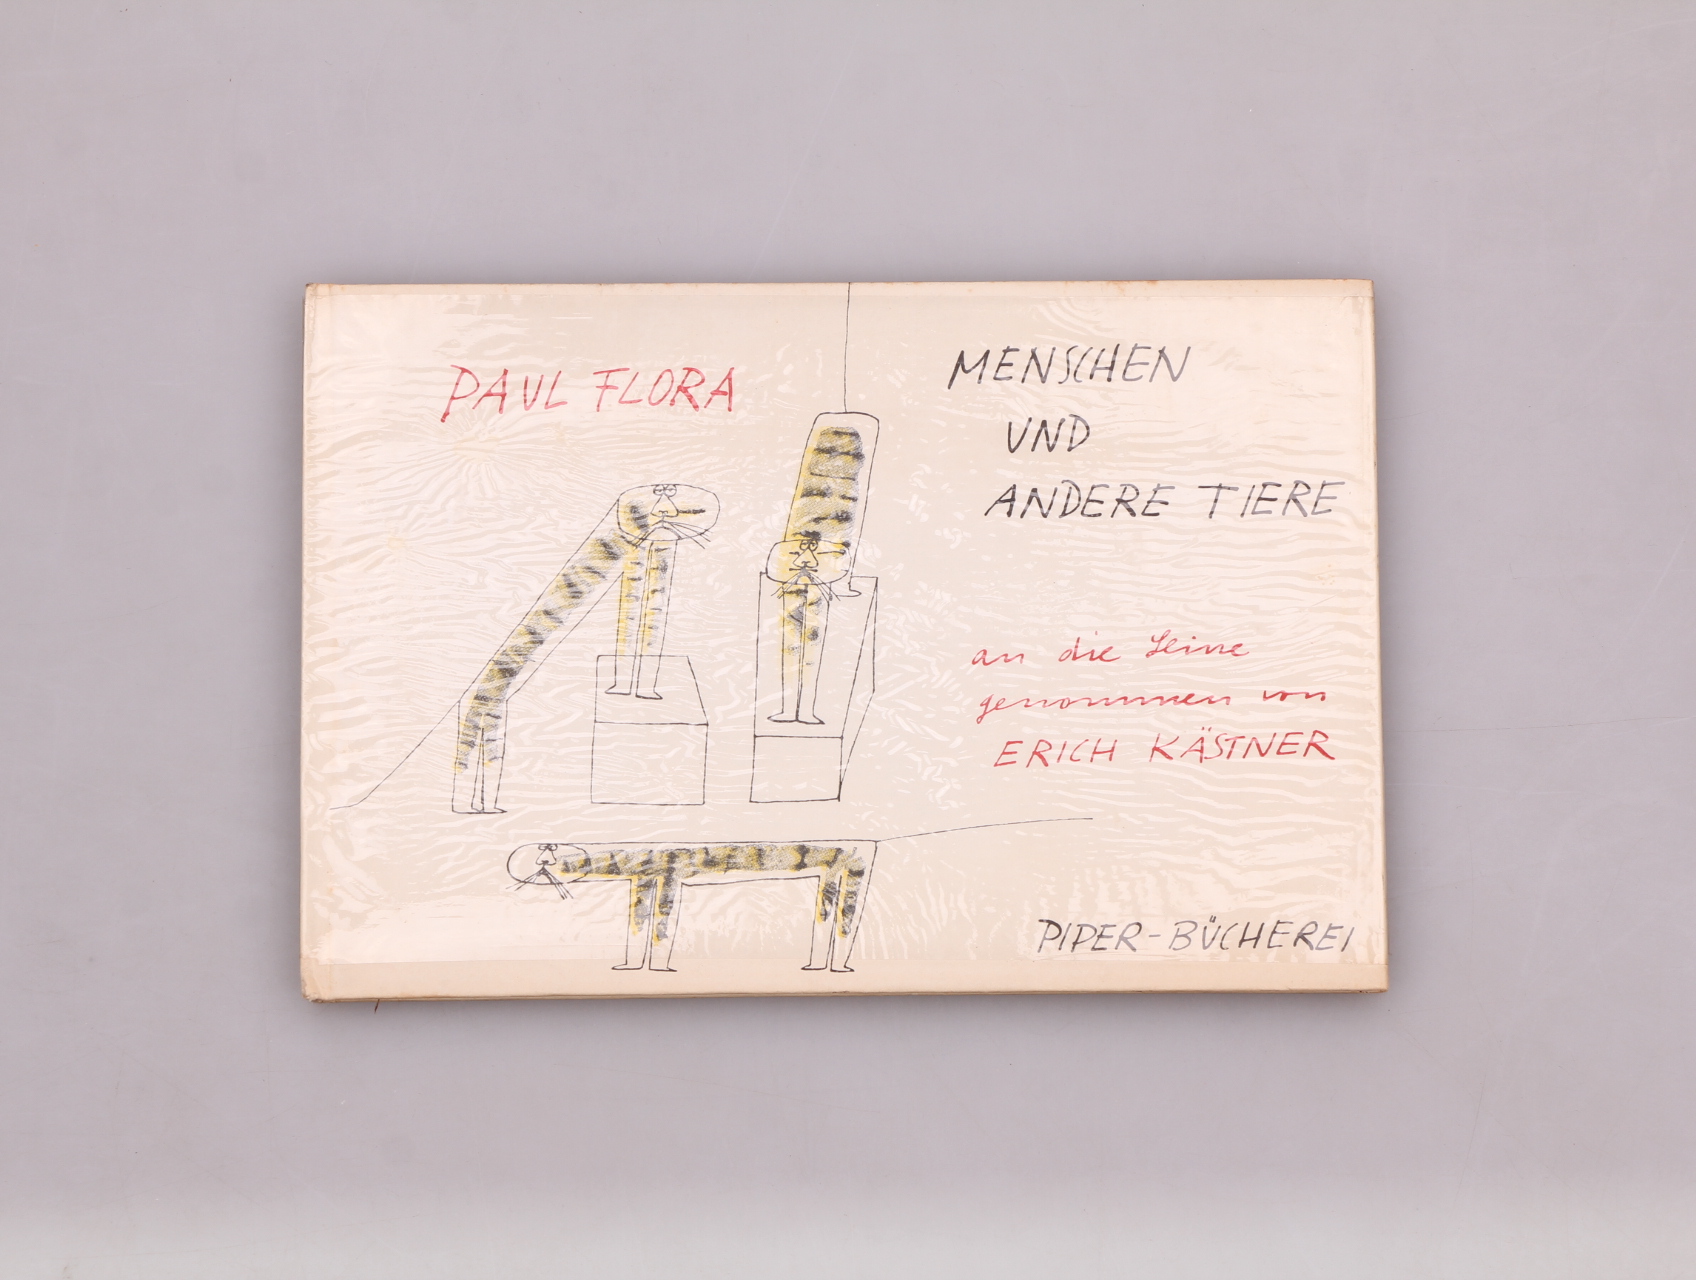 PAUL FLORA
MENSCHEN
UND
ANDERE TIERE
an die Leine
genommen von
ERICH KÄSTNER
PIPER-BÜCHEREI